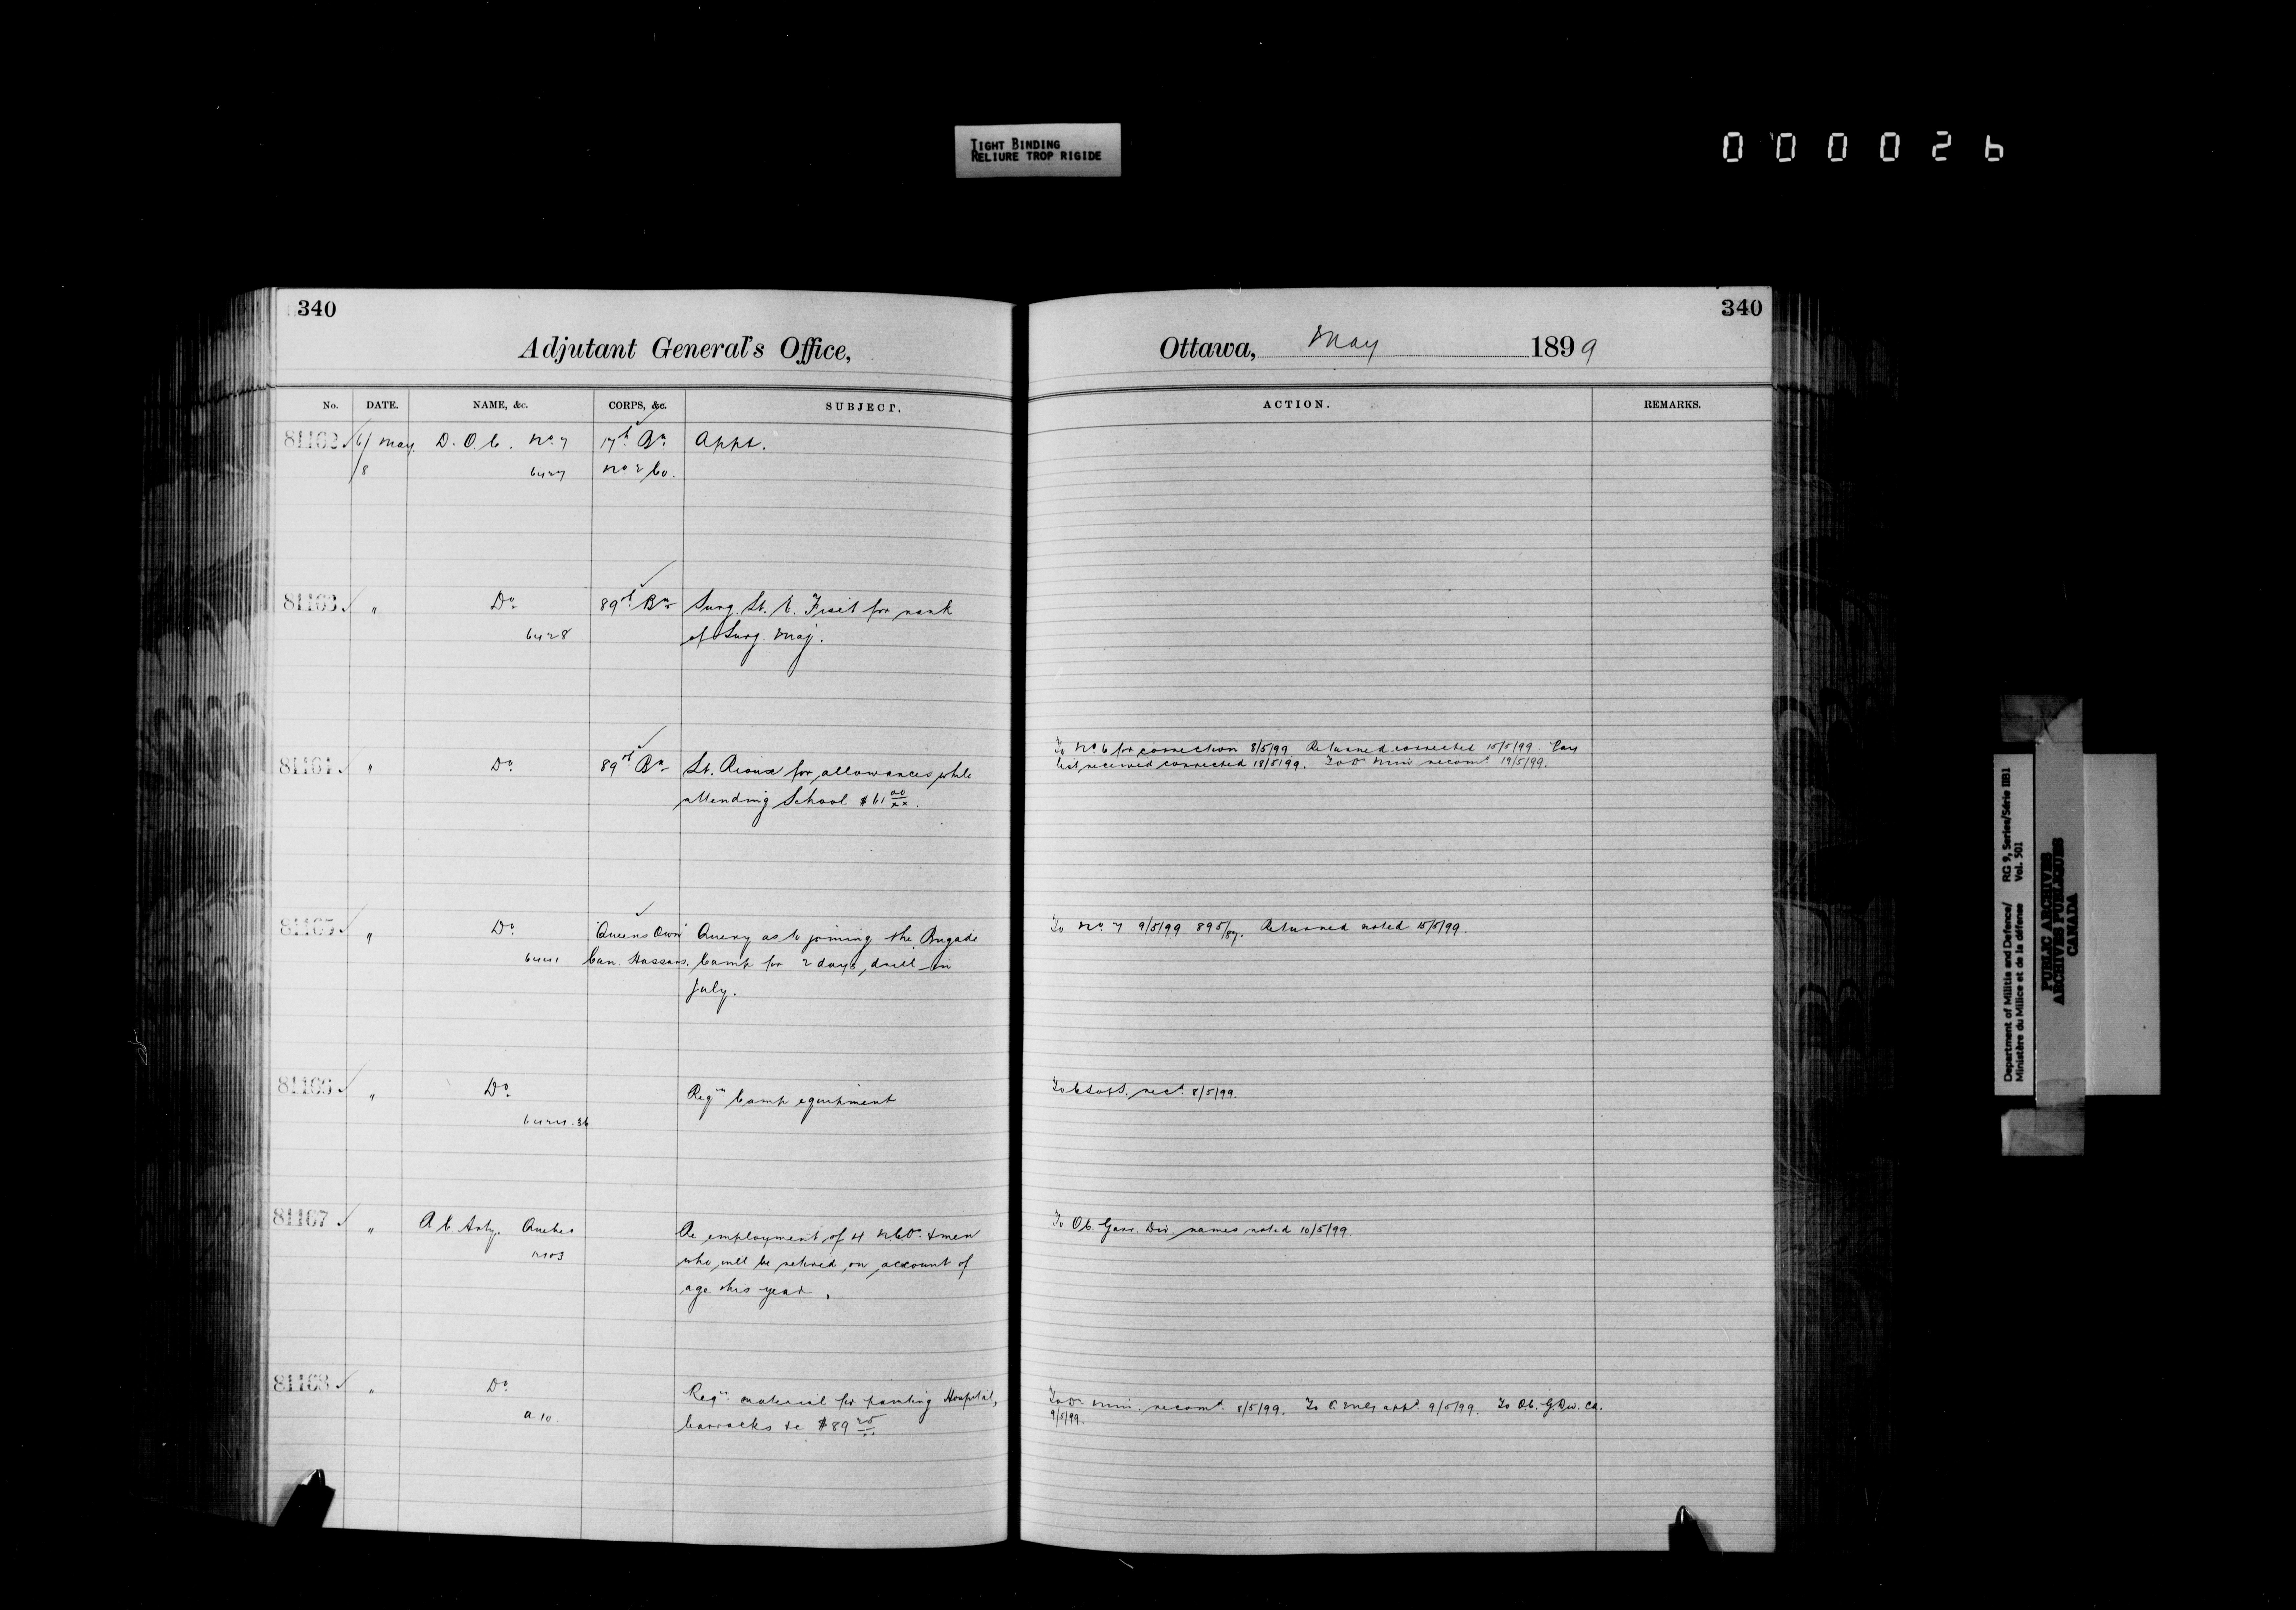 TIGHT BINDING
RELIURE TROP RIGIDE
000026
340
340
Adjutant General's Office,
Ottawa, May 1899
No. DATE. NAME, &c. CORPS, &c. SUBJECT. ACTION. REMARKS.
81162 6/ May D.O.C. No 7 17th Bn Appt.
/8 6427 No 2 Co.
81163 " Do 89th Bn Surg. Lt. E. Fiset for rank
6428 of Surg. Maj.
81164 " Do 89th Bn Lt. Rioux for allowances while
attending School $61 00/xx.
To No 6 for correction 8/5/99 Returned corrected 15/5/99. Pay
list received corrected 18/5/99. To Dr Min recomd 19/5/99.
81165 " Do "Queens Own" Query as to joining the Brigade
6441 Can. Hussars. Camp for 2 days, drill in
July.
To No 7 9/5/99 895/87. Returned noted 15/5/99.
81166 " Do Reqn Camp equipment
6424.36
recd 8/5/99.
81167 " A C Arty. Quebec Re employment of 4 NCOs & men
who will be retired on account of
age this year.
To O.C. Garr. Div. names noted 10/5/99.
81168 " Do Reqn material for painting Hospital,
a 10. barracks &c $89 25
To Dr Min. recomd 8/5/99. appd 9/5/99. To O.C. G. Div. Ca.
9/5/99.
Department of Militia and Defence/ RG 9, Series/Série IIB1
Ministère du Milice et de la défense Vol. 501
PUBLIC ARCHIVES
ARCHIVES PUBLIQUES
CANADA